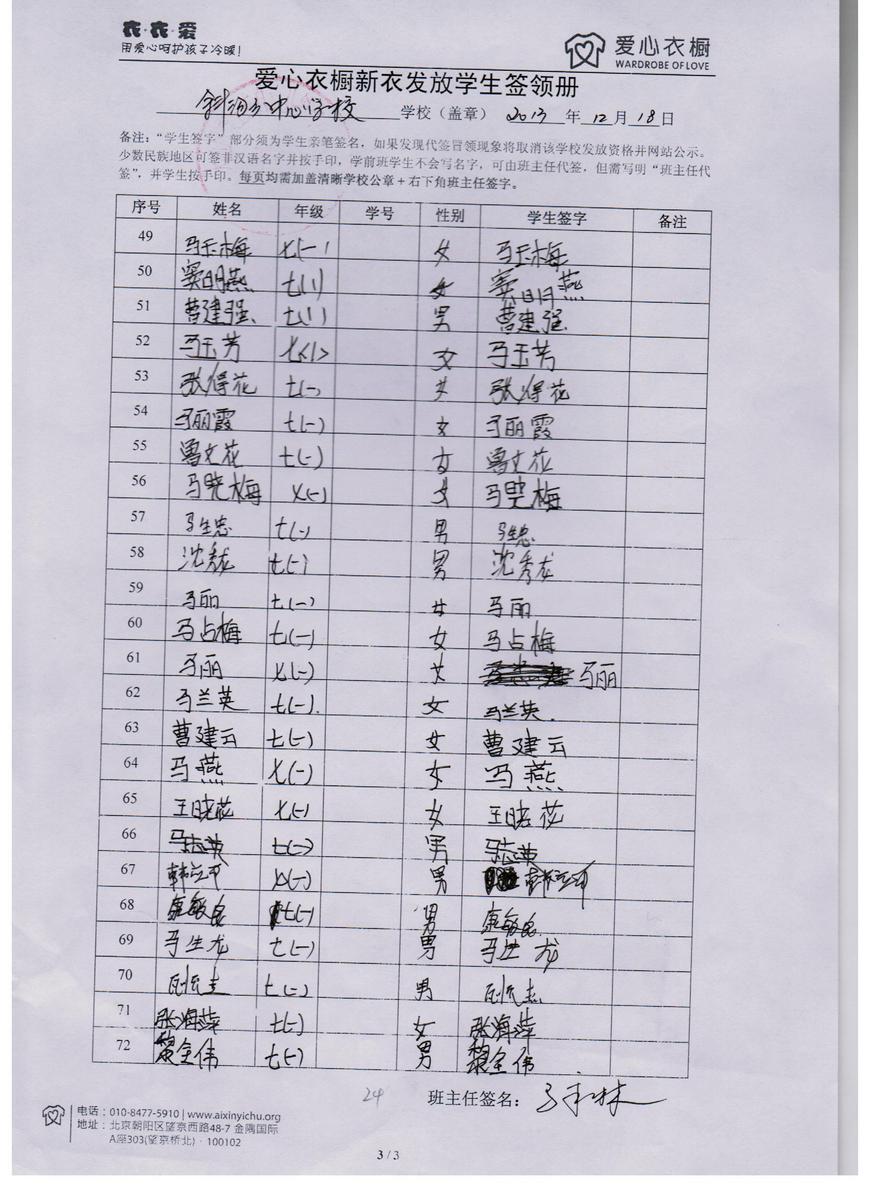 衣·衣·爱
用爱心呵护孩子冷暖!
爱心衣橱
WARDROBE OF LOVE
爱心衣橱新衣发放学生签领册
中心学校 学校（盖章） 2013 年 12 月 18 日
备注：“学生签字”部分须为学生亲笔签名，如果发现代签冒领现象将取消该学校发放资格并网站公示。
少数民族地区可签非汉语名字并按手印，学前班学生不会写名字，可由班主任代签，但需写明“班主任代
签”，并学生按手印。每页均需加盖清晰学校公章+右下角班主任签字。
序号 姓名 年级 学号 性别 学生签字 备注
49 马玉梅 七(一) 女 马玉梅
50 窦明燕 七(1) 女 窦明燕
51 曹建强 七(1) 男 曹建强
52 马玉芳 七<1> 女 马玉芳
53 张得花 七(一) 女 张得花
54 马丽霞 七(一) 女 马丽霞
55 曹文花 七(一) 女 曹文花
56 马晓梅 七(一) 女 马晓梅
57 马生忠 七(一) 男 马生忠
58 沈秀龙 七(一) 男 沈秀龙
59 马丽 七(一) 女 马丽
60 马占梅 七(一) 女 马占梅
61 马丽 七(一) 女 马丽
62 马兰英 七(一) 女 马兰英
63 曹建云 七(一) 女 曹建云
64 马燕 七(一) 女 马燕
65 王晓花 七(一) 女 王晓花
66 马志英 七(一) 男 马志英
67 七(一) 男
68 康敏 七(一) 男 康敏
69 马生龙 七(一) 男 马生龙
70 七(一) 男
71 张海萍 七(一) 女 张海萍
72 黎全伟 七(一) 男 黎全伟
24 班主任签名：马 林
电话：010-8477-5910 | www.aixinyichu.org
地址：北京朝阳区望京西路48-7 金隅国际
A座303(望京桥北) · 100102
3 / 3